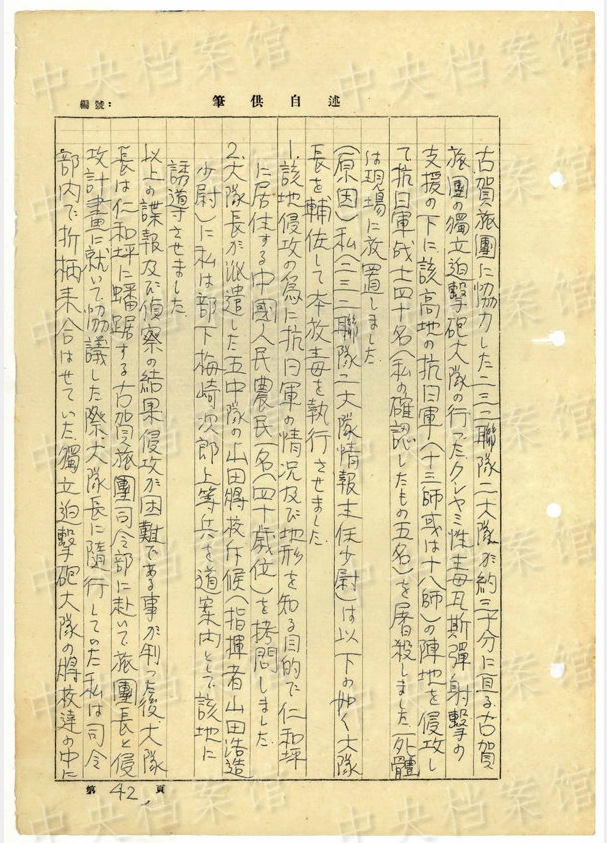 編號：
筆供自述
古賀旅團に協力した二三二聯隊二大隊が約三十分に亘る古賀
旅團の獨立迫擊砲大隊の行ったクシャミ性毒瓦斯彈射擊の
支援の下に該高地の抗日軍（十三師或は十八師）の陣地を侵攻し
て抗日軍战士四十名（私の確認したもの五名）を屠殺しました 死體
は現場に放置しました
（原因）私（二三二聯隊二大隊情報主任少尉）は以下の如く大隊
長を輔佐して本放毒を執行させました
1.該地侵攻の為に抗日軍の情況及び地形を知る目的で仁和坪
に居住する中國人民農民一名（四十歳位）を拷問しました
2.大隊長が派遣した五中隊の山田將校斥候（指揮者山田浩造
少尉）に私は部下梅崎次郎上等兵を道案内として該地に
誘導させました
以上の諜報及び偵察の結果侵攻が困難である事が判つた後、大隊
長は仁和坪に蟠踞する古賀旅團司令部に赴いて旅團長と侵
攻計畫に就いて協議した際、大隊長に隨行していた私は司令
部内で折柄来合はせていた獨立迫擊砲大隊の將校達の中に
第42頁
中央档案馆